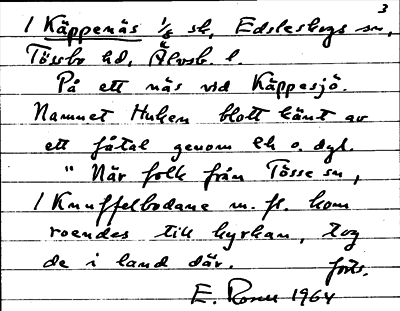 3
/ Käppenäs 1/6 sk, Edsleskogs sn,
Tössbo hd, Älvsb. l.
På ett näs vid Käppesjö.
Namnet Huken blott känt av
ett fåtal genom lk o. dyl.
" När folk från Tösse sn,
/ Knuffelbodane m. fl. kom
roendes till kyrkan, tog
de i land där. forts.
E. Rosen 1964